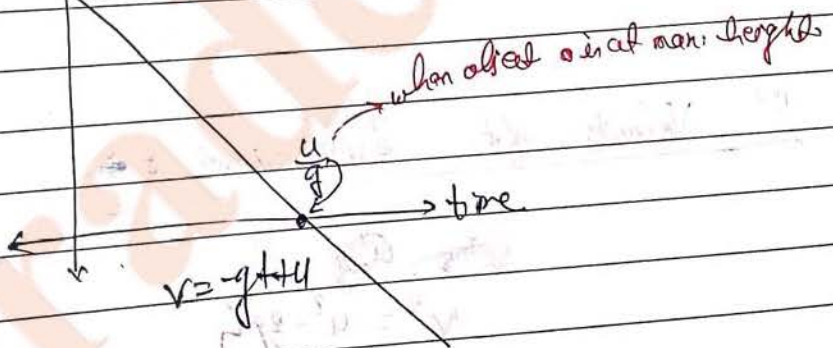 when object is at max. height
u/g
time
v = -gt+u